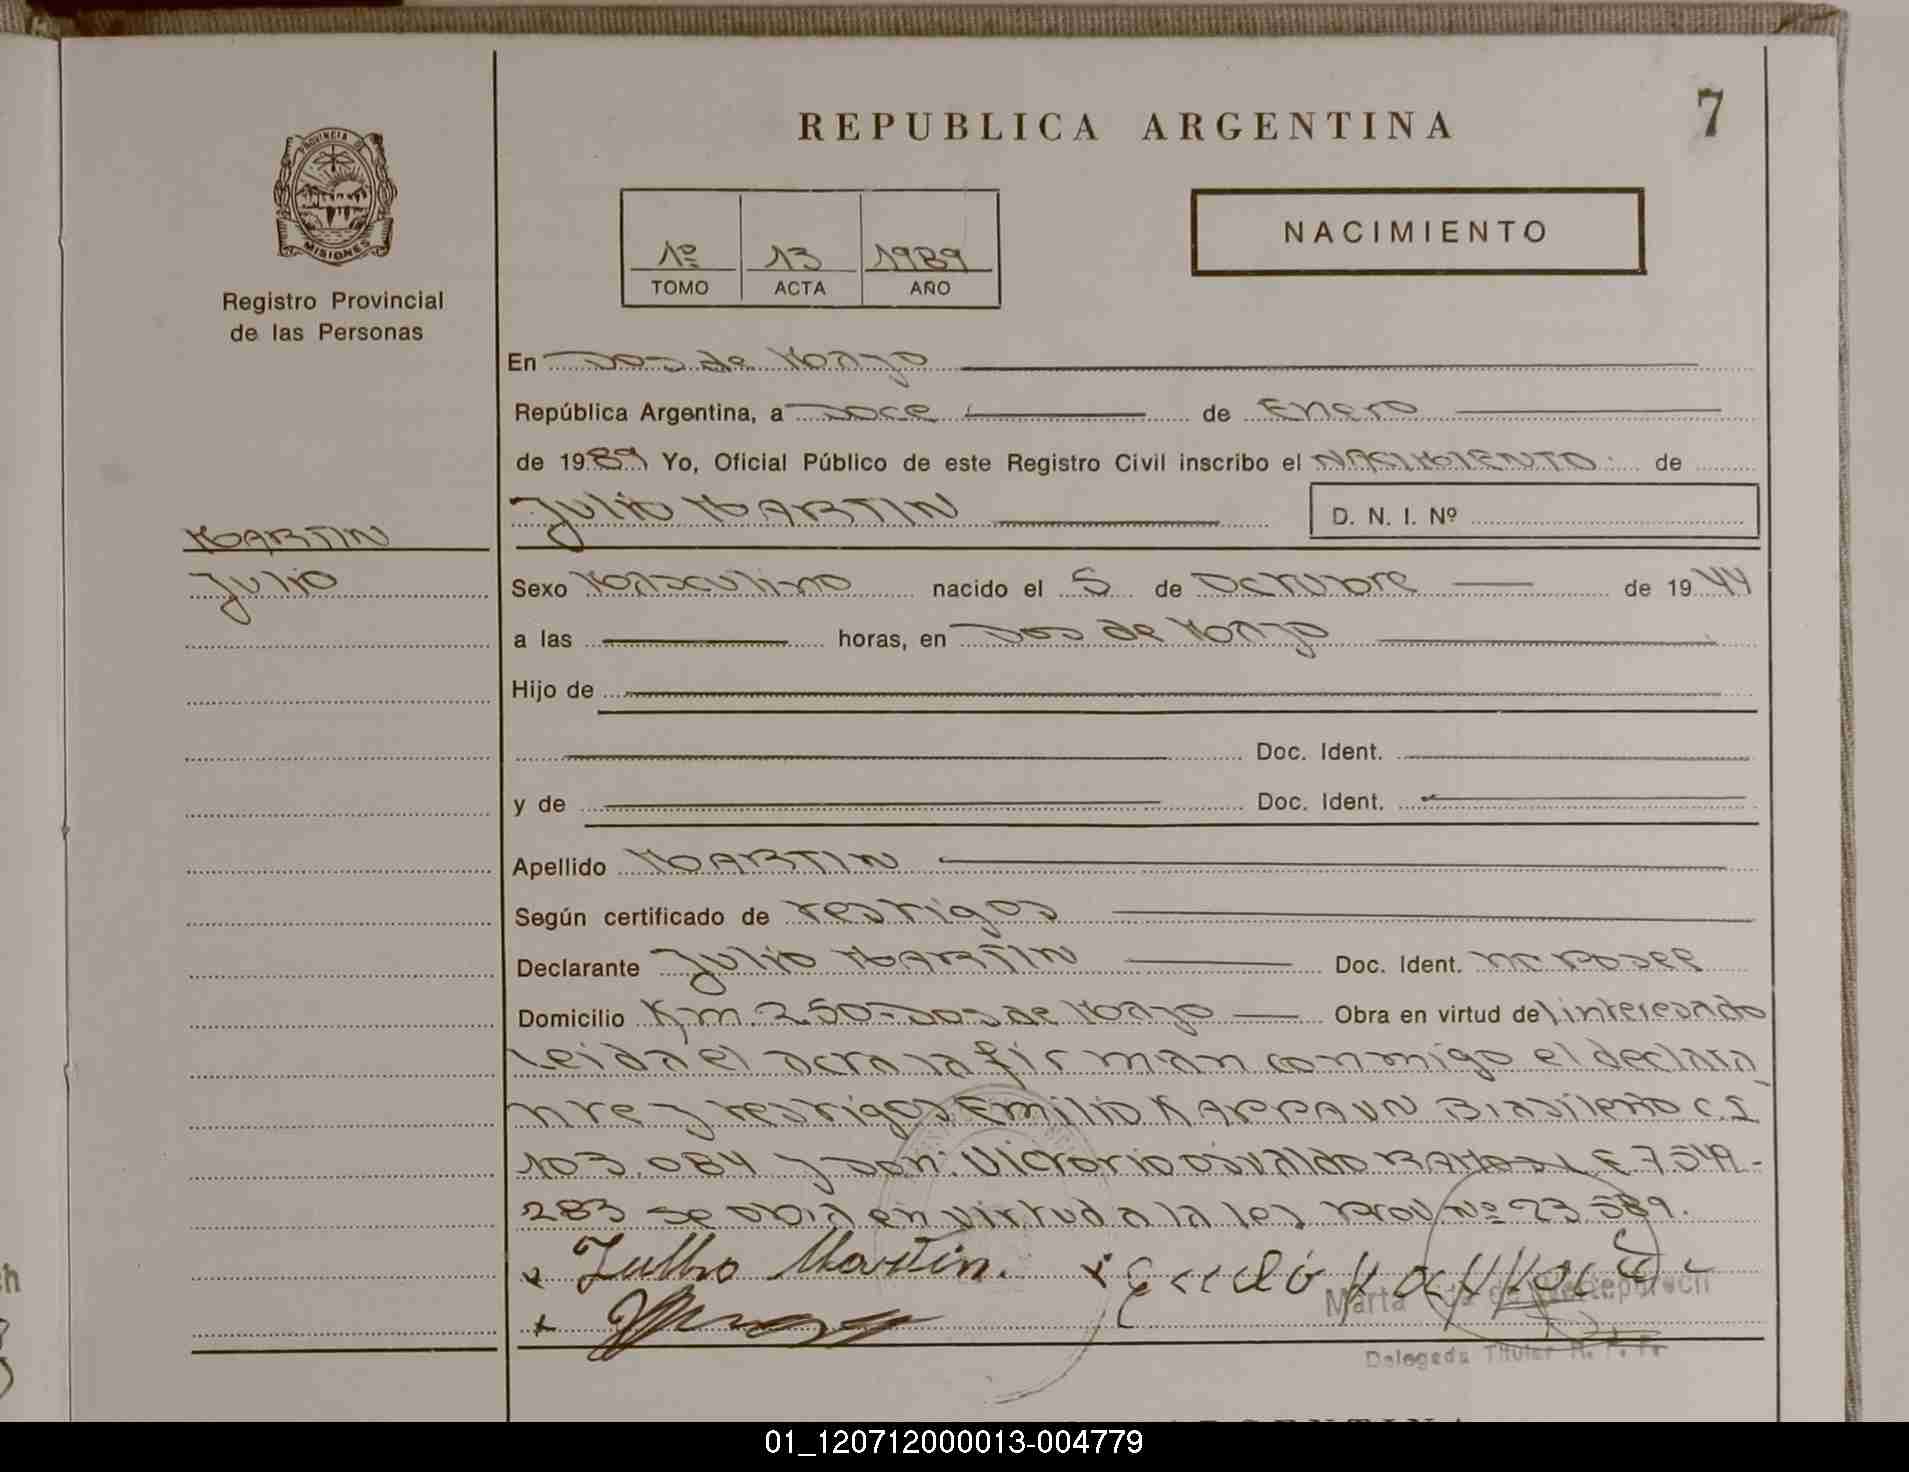 REPUBLICA ARGENTINA
7
PROVINCIA D
MISIONES
Registro Provincial
de las Personas
1º 13 1989
TOMO ACTA AÑO
NACIMIENTO
En Dos de Mayo
República Argentina, a Doce de Enero
de 1989 Yo, Oficial Público de este Registro Civil inscribo el NACIMIENTO de
Julio MARTIN
D. N. I. Nº
MARTIN
Julio
Sexo Masculino nacido el 5 de Octubre de 1944
a las horas, en Dos de Mayo
Hijo de
Doc. Ident.
y de Doc. Ident.
Apellido MARTIN
Según certificado de testigos
Declarante Julio MARTIN Doc. Ident. no posee
Domicilio Km. 250-Dos de Mayo Obra en virtud de interesado
Leida el acta la firman conmigo el declara
nte y testigos Emilio KAPPAUN Brasileño C.I
103.084 y Don: Victorio Osvaldo RAMOS L E 7.519-
283 se obra en virtud a la ley Prov Nº 23.589.
x Julho Martin. x
x
Marta
Delegada Titular R. P. P.
ARGENTINA
01_120712000013-004779